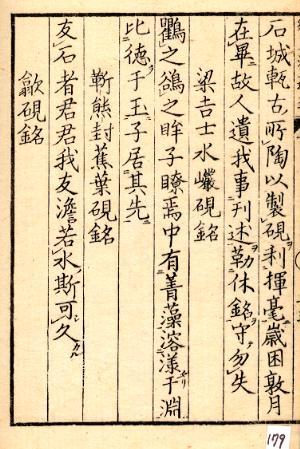 石城甎古所陶以製硯利揮毫歳困敦月
在畢故人遺我事刋述勒休銘守勿失
梁吉士水巖硯銘
鸜之鵒之眸子瞭焉中有菁藻溶漾于淵
比德于玉子居其先
靳熊封蕉葉硯銘
友石者君君我友澹若水斯可久
歙硯銘
179